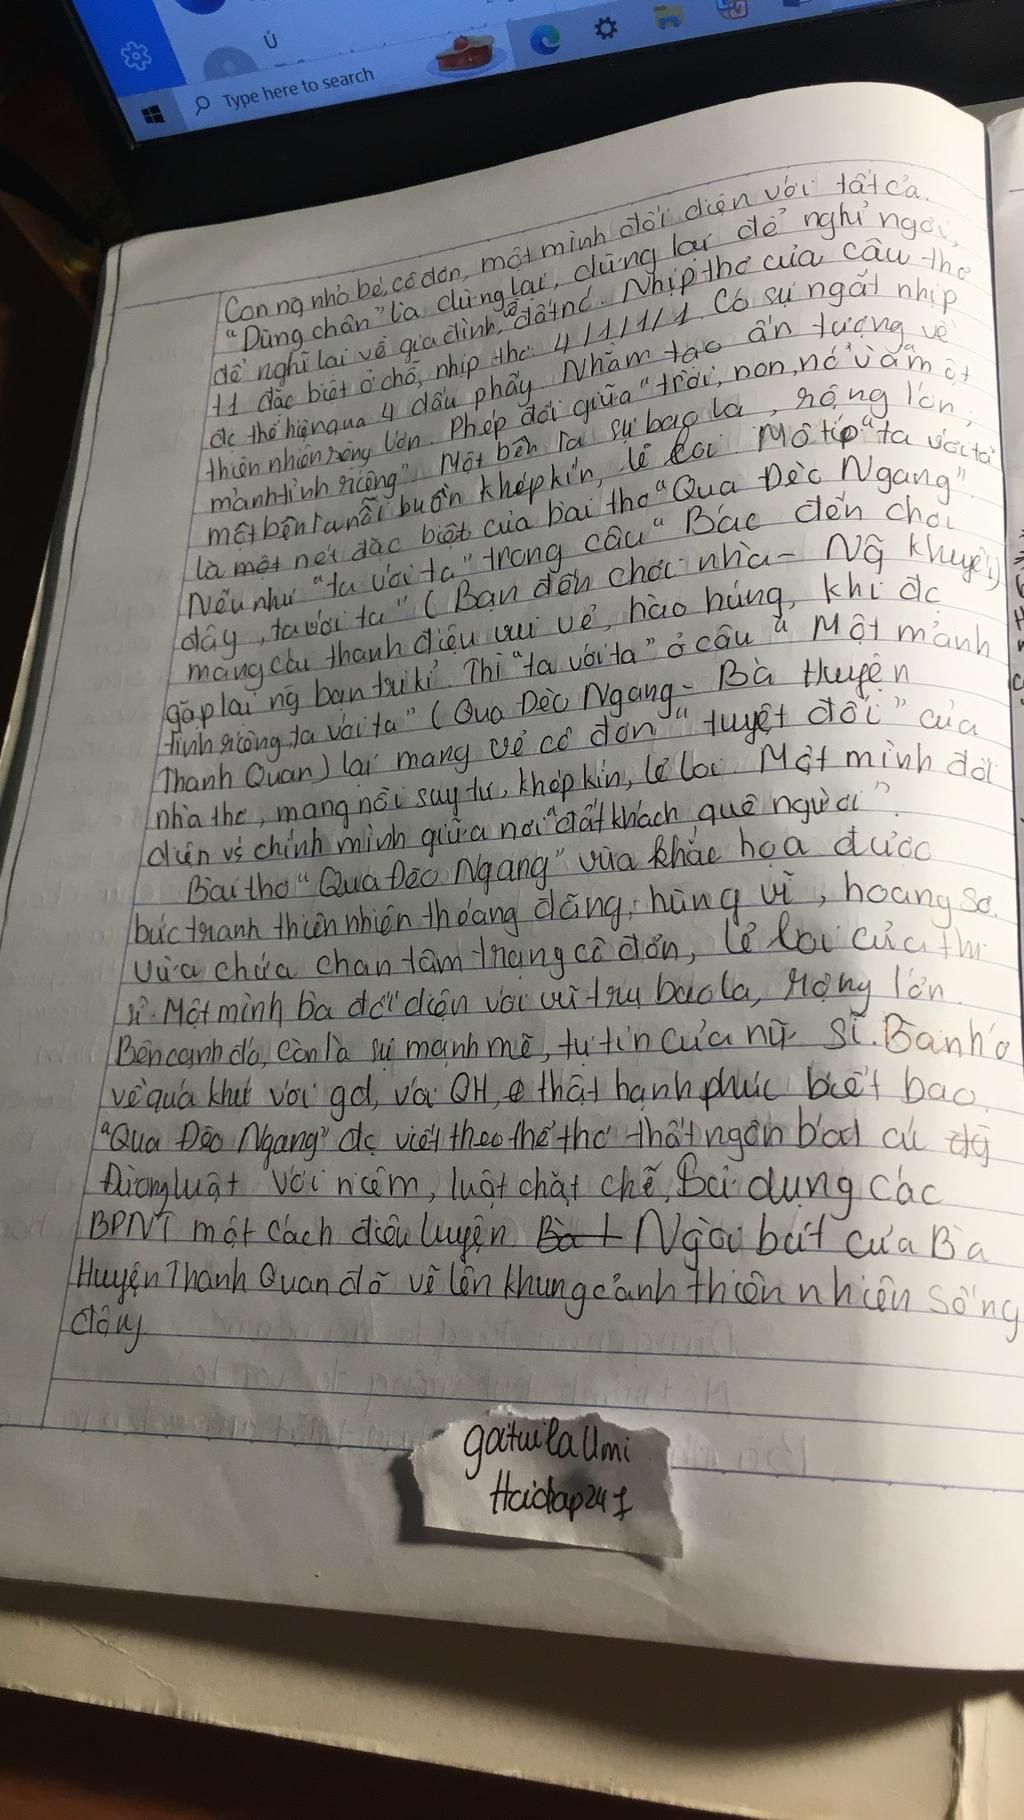 Ú
Type here to search
Con ng nhỏ bé, cô đơn, một mình đối diện với tất cả.
"Dừng chân" là dừng lại, dừng lại để nghỉ ngơi,
để nghĩ lại về gia đình, về đất nc. Nhịp thơ của câu thơ
t1 đặc biệt ở chỗ, nhịp thơ 4/1/1/1. Có sự ngắt nhịp
đc thể hiện qua 4 dấu phẩy. Nhằm tạo ấn tượng về
thiên nhiên rộng lớn. Phép đối giữa "trời, non, nc" và "một
mảnh tình riêng". Một bên là sự bao la, rộng lớn;
một bên là nỗi buồn khép kín, lẻ loi. Mô típ "ta với ta"
là một nét đặc biệt của bài thơ "Qua Đèo Ngang".
Nếu như "ta với ta" trong câu "Bác đến chơi
đây, ta với ta" (Bạn đến chơi nhà - Ng Khuyến)
mang cái thanh điệu vui vẻ, hào hứng, khi đc
gặp lại ng bạn tri kỉ. Thì "ta với ta" ở câu "Một mảnh
tình riêng, ta với ta" (Qua Đèo Ngang - Bà Huyện
Thanh Quan) lại mang vẻ cô đơn "tuyệt đối" của
nhà thơ, mang nỗi suy tư, khép kín, lẻ loi. Một mình đối
diện vs chính mình giữa nơi "đất khách quê người".
Bài thơ "Qua Đèo Ngang" vừa khắc họa được
bức tranh thiên nhiên thoáng đãng, hùng vĩ, hoang sơ.
Vừa chứa chan tâm trạng cô đơn, lẻ loi của thi
sĩ. Một mình bà đối diện với vũ trụ bao la, rộng lớn.
Bên cạnh đó, còn là sự mạnh mẽ, tự tin của nữ sĩ. Bà nhớ
về quá khứ với gđ, với QH, thật hạnh phúc biết bao.
"Qua Đèo Ngang" đc viết theo thể thơ thất ngôn bát cú
Đường luật với niêm, luật chặt chẽ, sử dụng các
BPNT một cách điêu luyện. Bà t Ngòi bút của Bà
Huyện Thanh Quan đã vẽ lên khung cảnh thiên nhiên sống
động
gatuilaUmi
Hoidap247